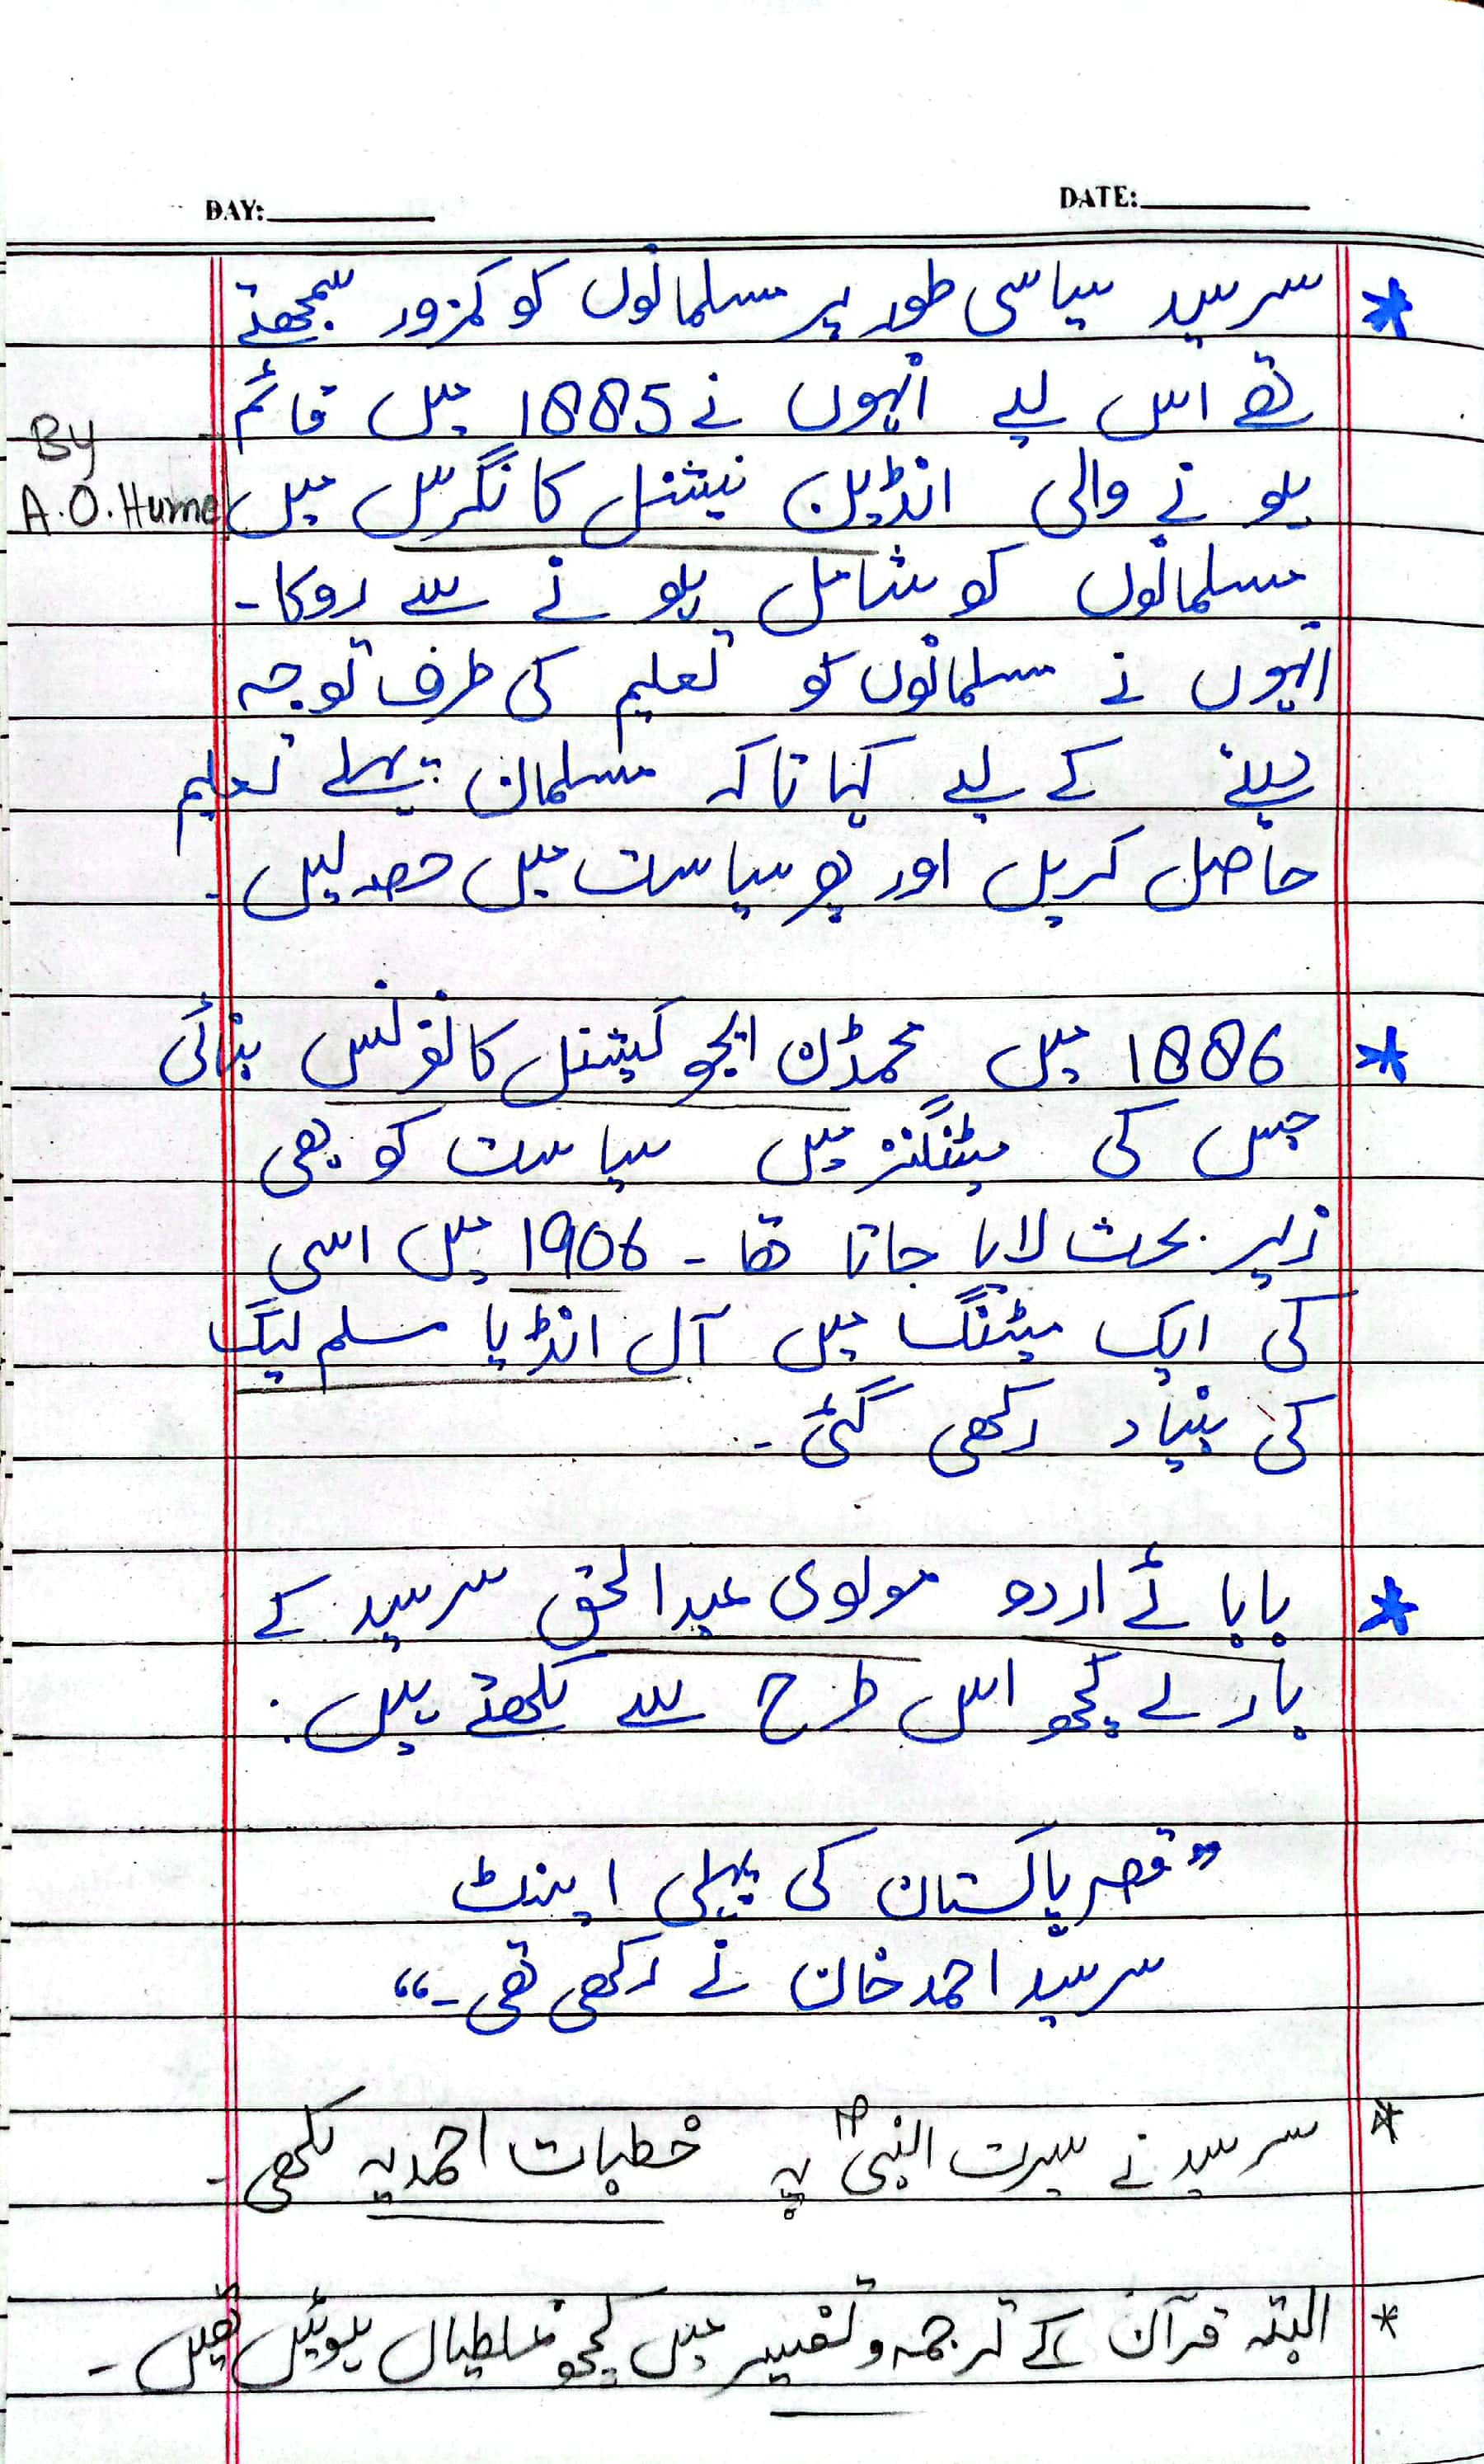 DAY: DATE:
* سرسید سیاسی طور پر مسلمانوں کو کمزور سمجھتے
تھے اس لیے انہوں نے 1885 میں قائم
By
ہونے والی انڈین نیشنل کانگرس میں
A.O.Hume
مسلمانوں کو شامل ہونے سے روکا۔
انہوں نے مسلمانوں کو تعلیم کی طرف توجہ
دینے کے لیے کہا تاکہ مسلمان پہلے تعلیم
حاصل کریں اور پھر سیاست میں حصہ لیں۔
* 1886 میں محمڈن ایجوکیشنل کانفرنس بنائی
جس کی میٹنگز میں سیاست کو بھی
زیر بحث لایا جاتا تھا۔ 1906 میں اسی
کی ایک میٹنگ میں آل انڈیا مسلم لیگ
کی بنیاد رکھی گئی۔
* بابائے اردو مولوی عبدالحق سرسید کے
بارے کچھ اس طرح سے لکھتے ہیں:
”قصر پاکستان کی پہلی اینٹ
سرسید احمد خان نے رکھی تھی۔“
* سرسید نے سیرت النبیؐ پہ خطبات احمدیہ لکھی۔
* البتہ قرآن کے ترجمہ و تفسیر میں کچھ غلطیاں ہوئیں تھیں۔